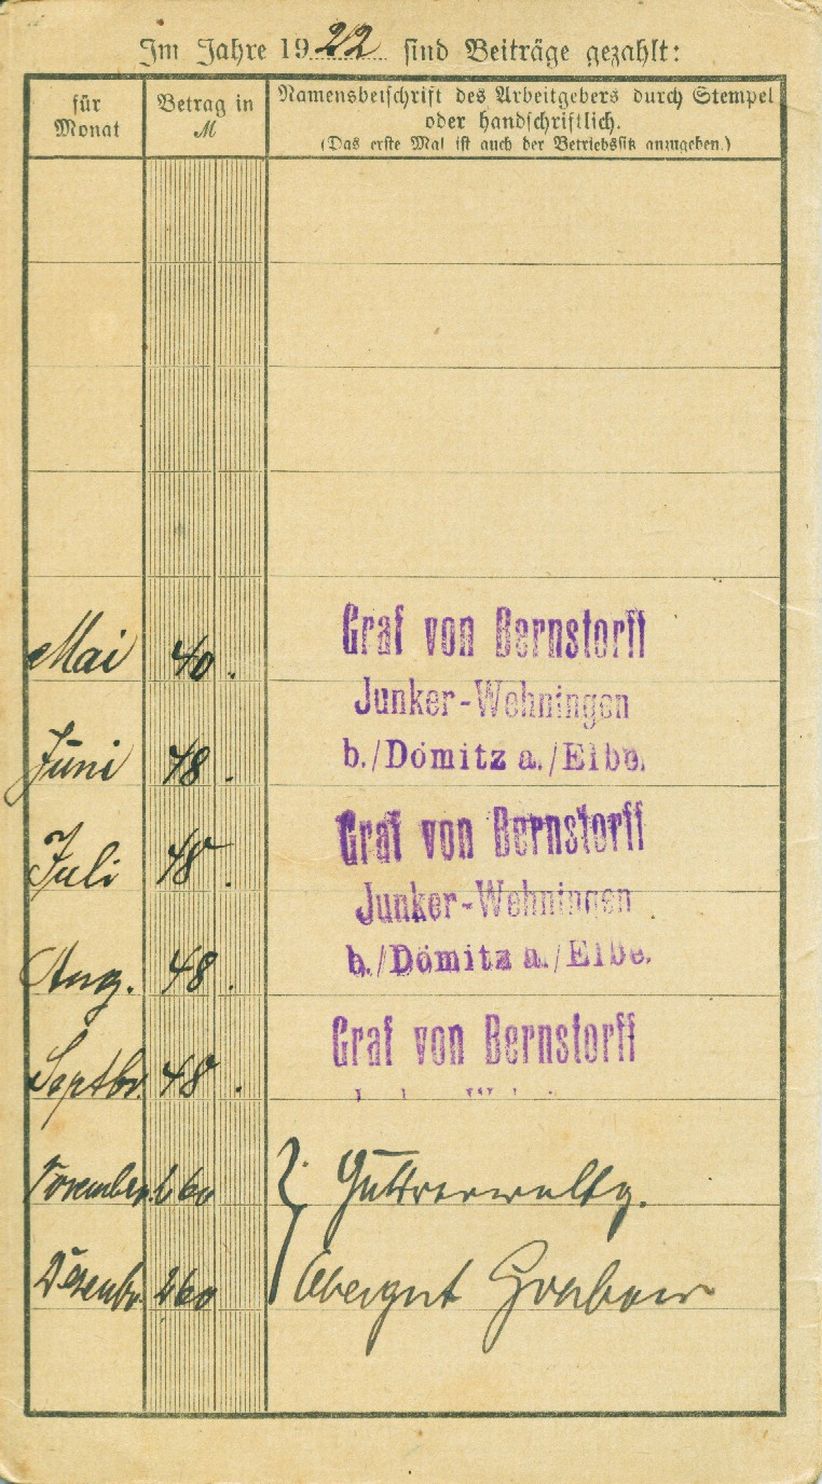 Im Jahre 1922 sind Beiträge gezahlt:
für Monat
Betrag in M
Namensbeischrift des Arbeitgebers durch Stempel
oder handschriftlich.
(Das erste Mal ist auch der Betriebssitz anzugeben.)
Mai 40.
Graf von Bernstorff
Junker-Wehningen
b./Dömitz a./Elbe.
Juni 48.
Juli 48.
Graf von Bernstorff
Junker-Wehningen
b./Dömitz a./Elbe.
Aug. 48.
Septbr. 48.
Graf von Bernstorff
November 260
Gutsverwaltg.
Dezembr. 260
Obergut Grabow